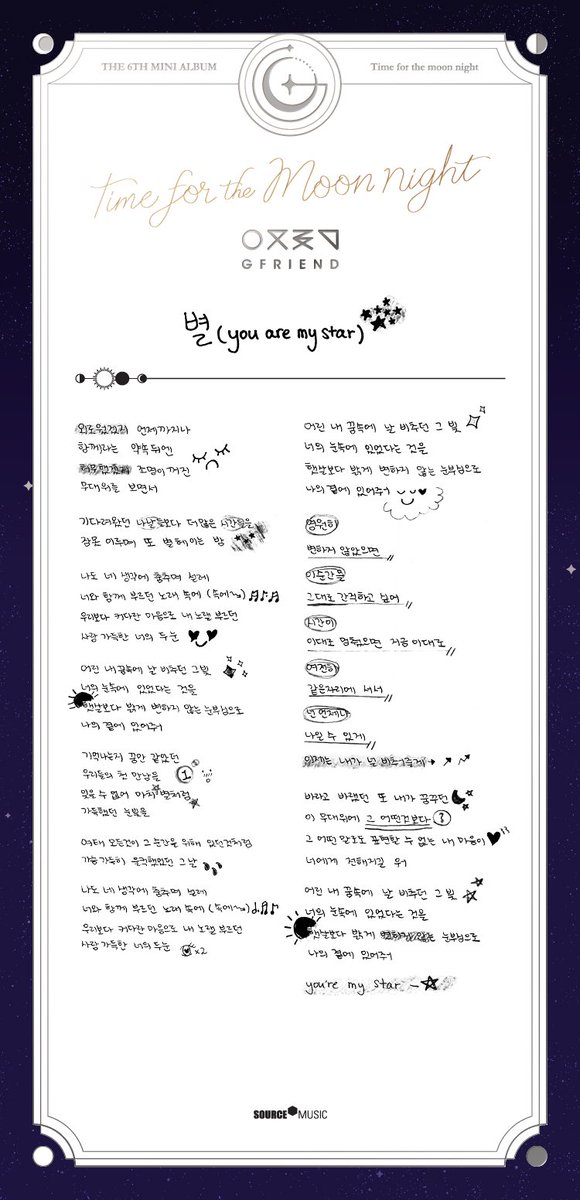 THE 6TH MINI ALBUM
Time for the moon night
Time for the Moon night
GFRIEND
별 (you are my star)
외로웠겠지 언제까지나
함께라는 약속 뒤엔
조명이 꺼진
무대위를 보면서
기다려왔던 나날들보다 더 많은 시간들을
잠 못 이루며 또 별 헤이는 밤
나도 네 생각에 춤추며 설레
너와 함께 부르던 노래 속에 (속에~)
우리보다 커다란 마음으로 내 노랠 부르던
사랑 가득한 너의 두 눈
어린 내 꿈속에 날 비추던 그 빛
너의 눈속에 있었다는 것을
햇살보다 밝게 변하지 않는 눈부심으로
나의 곁에 있어주어
기억나는지 꿈만 같았던
우리들의 첫 만남을 1
잊을 수 없어 마치 별처럼
가득했던 눈빛을
여태 모든것이 그 순간을 위해 있던것처럼
가슴 가득히 울컥했었던 그 날
나도 네 생각에 춤추며 설레
너와 함께 부르던 노래 속에 (속에~)
우리보다 커다란 마음으로 내 노랠 부르던
사랑 가득한 너의 두 눈 x2
어린 내 꿈속에 날 비추던 그 빛
너의 눈속에 있었다는 것을
햇살보다 밝게 변하지 않는 눈부심으로
나의 곁에 있어주어
영원히
변하지 않았으면
이 순간을
그대로 간직하고 싶어
시간이
이대로 멈췄으면 지금 이대로
여전히
같은자리에 서서
넌 언제나
나일 수 있게
이제는 내가 널 비춰줄게
바라고 바랬던 또 내가 꿈꾸던
이 무대위에 그 어떤것보다
그 어떤 말로도 표현할 수 없는 내 마음이
너에게 전해지길 워
어린 내 꿈속에 날 비추던 그 빛
너의 눈속에 있었다는 것을
햇살보다 밝게 변하지 않는 눈부심으로
나의 곁에 있어주어
you're my star
SOURCE MUSIC